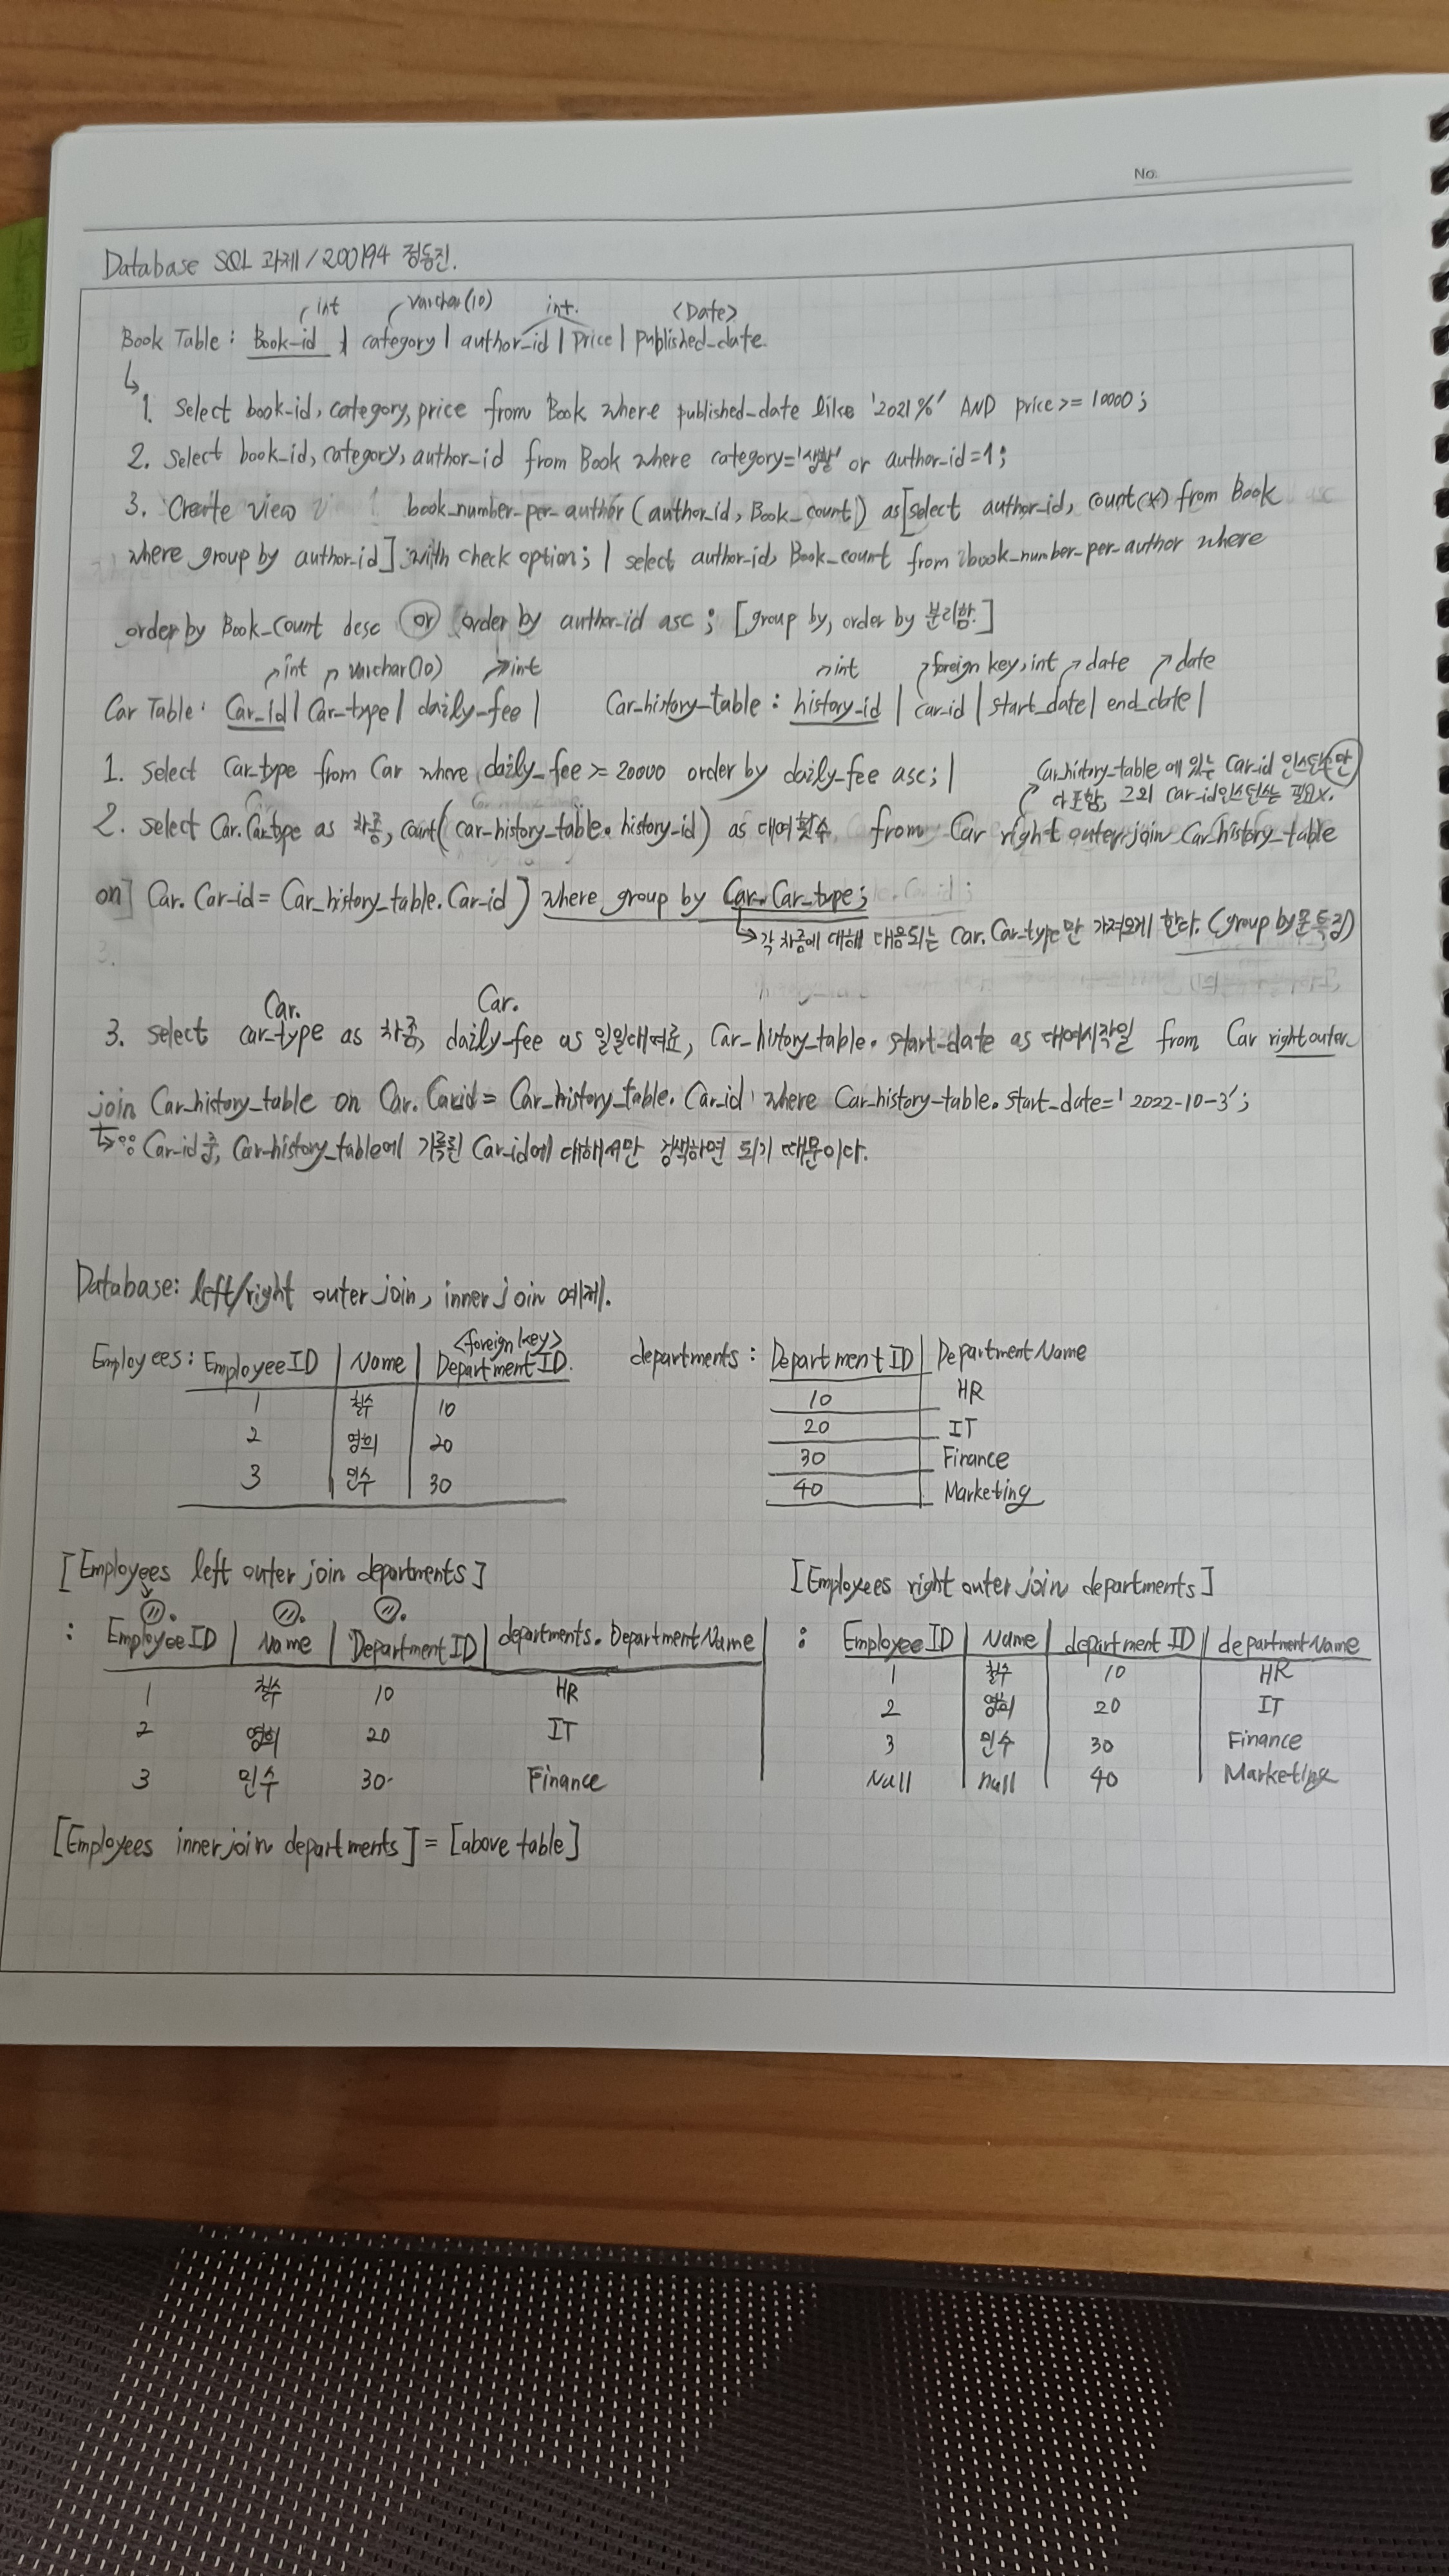 No.
Database SQL 과제 / 200194 정동진.
int varchar(10) int. <Date>
Book Table : Book-id | category | author-id | Price | published-date.
1. select book-id, category, price from Book where published-date like '2021%' AND price >= 10000 ;
2. select book-id, category, author-id from Book where category='생활' or author-id=1;
3. Create view book_number-per-author (author-id, Book_count) as [select author-id, count(*) from Book
where group by author-id] with check option; | select author-id, Book_count from book_number-per-author where
order by Book_count desc or order by author-id asc ; [group by, order by 분리함.]
int varchar(10) int int foreign key, int date date
Car Table : Car_id | Car-type | daily-fee | Car-history_table : history-id | car-id | start_date | end_date |
1. select Car-type from Car where daily_fee >= 20000 order by daily-fee asc; | Car_history_table에 있는 Car-id 인스턴스만
다 포함, 그외 car-id인스턴스는 필요x.
2. select Car.Car-type as 차종, count(car-history_table.history-id) as 대여횟수 from Car right outer join Car_history_table
on] Car.Car-id = Car_history_table.Car-id] where group by Car.Car_type;
각 차종에 대해 대응되는 Car.Car-type만 가져오게 한다. (group by문 특징)
3.
Car. Car.
3. select car-type as 차종, daily-fee as 일일대여료, Car_history_table.start-date as 대여시작일 from Car right outer
join Car_history_table on Car.Car-id = Car_history_table.Car_id where Car_history-table.start_date='2022-10-3';
∵ Car-id 중, Car-history_table에 기록된 Car-id에 대해서만 검색하면 되기 때문이다.
Database: left/right outer join, inner join 예제.
<foreign key>
Employees : EmployeeID | Name | Department ID. departments : Department ID | Department Name
1 철수 10 10 HR
2 영희 20 20 IT
3 민수 30 30 Finance
40 Marketing
[Employees left outer join departments] [Employees right outer join departments]
〃. 〃. 〃.
: EmployeeID | Name | Department ID | departments.Department Name | : Employee ID | Name | department ID | department Name
1 철수 10 HR 1 철수 10 HR
2 영희 20 IT 2 영희 20 IT
3 민수 30 Finance 3 민수 30 Finance
Null null 40 Marketing
[Employees inner join departments] = [above table]